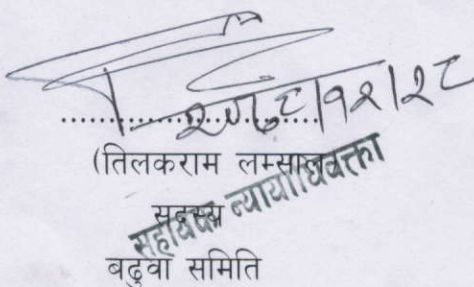 २०७८।१२।२८
(तिलकराम लम्साल)
सदस्य
सहायक न्यायाधिवक्ता
बढुवा समिति